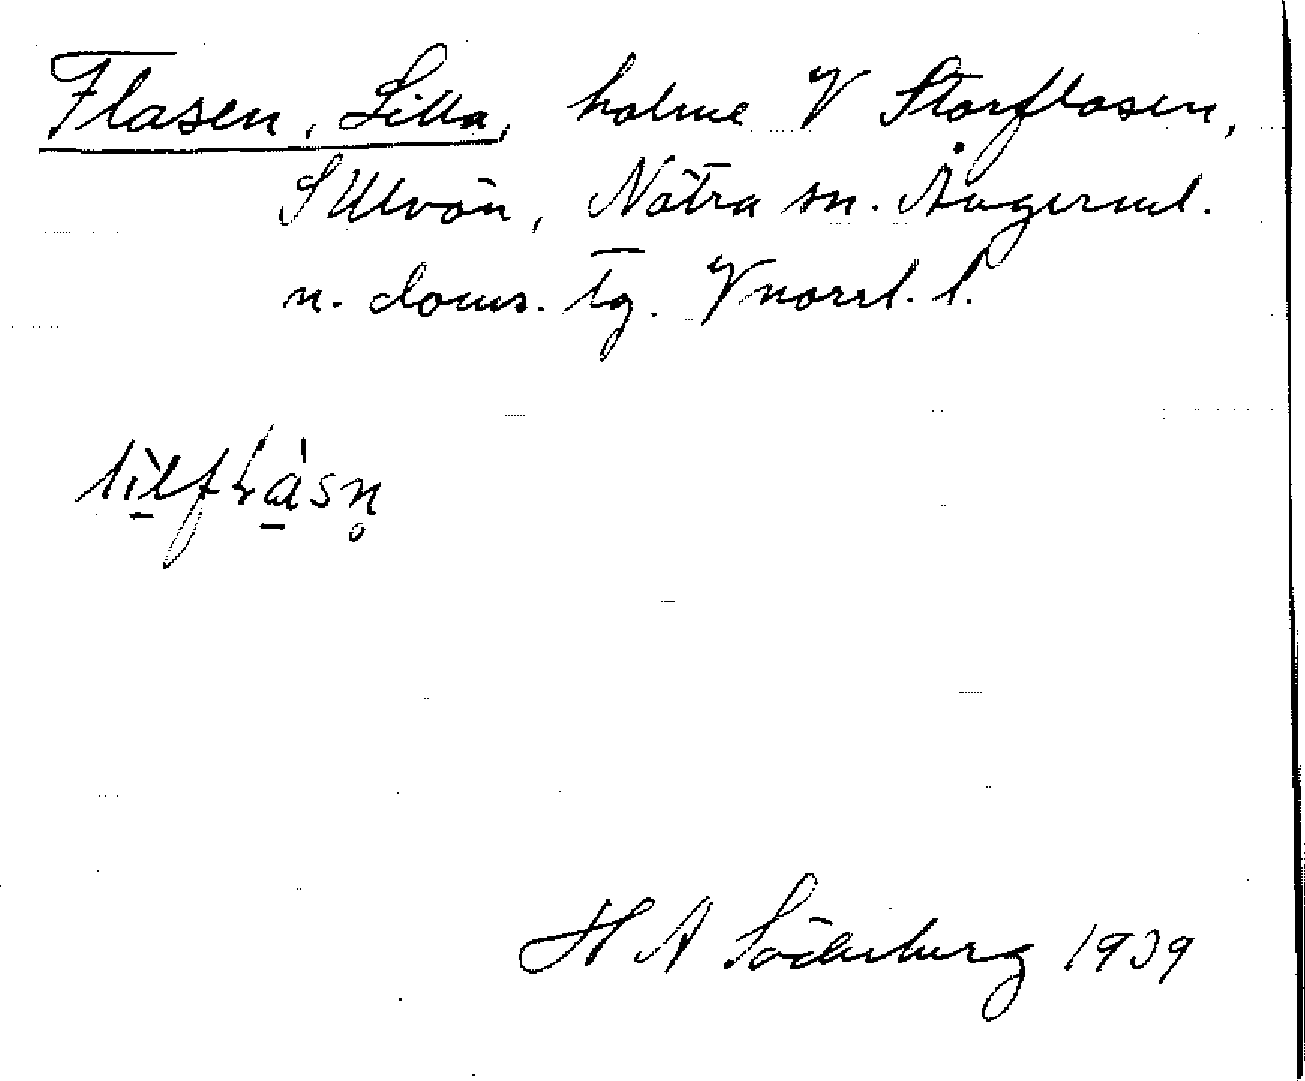 Flasen, Lilla, holme V Storflasen,
S Ulvön, Nätra sn. Ångerml.
n. doms. tg. Vnorrl. l.
H A Söderberg 1939